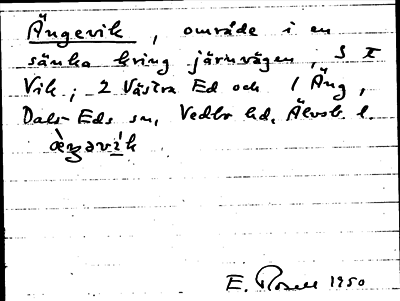 Ängevik, område i en
sänka kring järnvägen, S I
Vik; 2 Västra Ed och 1 Äng,
Dals-Eds sn, Vedbo hd, Älvsb. l.
E. Rosell 1950